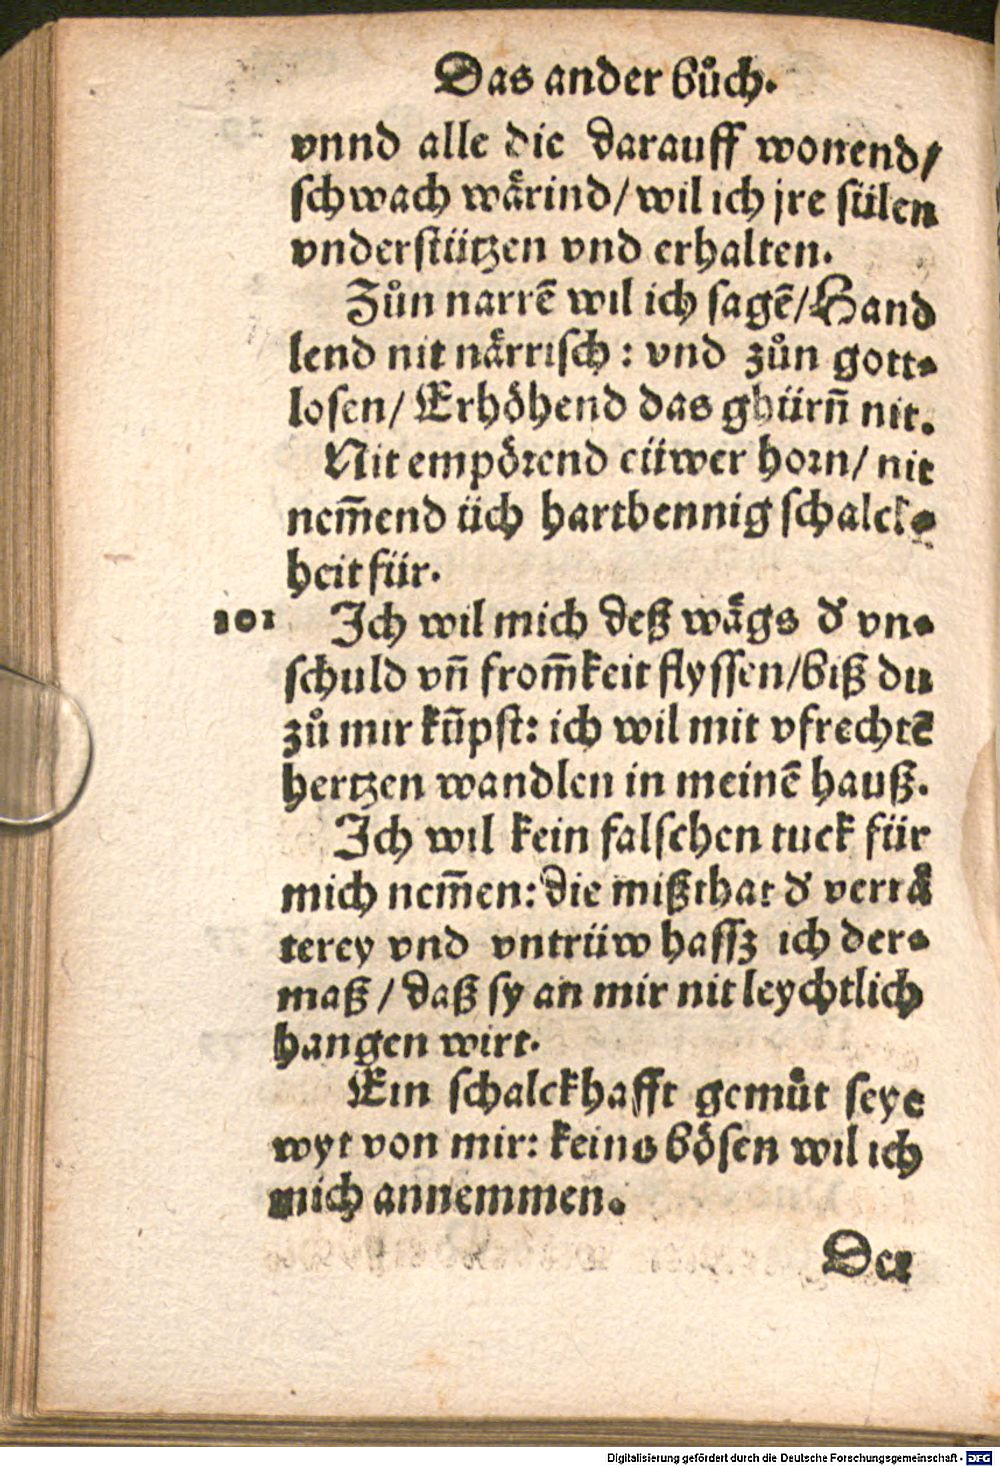 Das ander bůch.
vnnd alle die darauff wonend/
schwach wårind/ wil ich jre sülen
vnderstützen vnd erhalten.
Zůn narrē wil ich sagē/ Hand
lend nit nårrisch: vnd zůn gott-
losen/ Erhöhend das ghürn̄ nit.
Nit empörend eüwer horn/ nit
nem̄end üch hartbennig schalck-
heit für.
101 Ich wil mich deß wågs d' vn-
schuld vn̄ from̄keit flyssen/ biß du
zů mir kūpst: ich wil mit vfrechtē
hertzen wandlen in meinē hauß.
Ich wil kein falschen tuck für
mich nem̄en: die mißthat d' verrå
terey vnd vntrüw hassz ich der-
maß/ daß sy an mir nit leychtlich
hangen wirt.
Ein schalckhafft gemůt seye
wyt von mir: keins bösen wil ich
mich annemmen.
Der
Digitalisierung gefördert durch die Deutsche Forschungsgemeinschaft - DFG